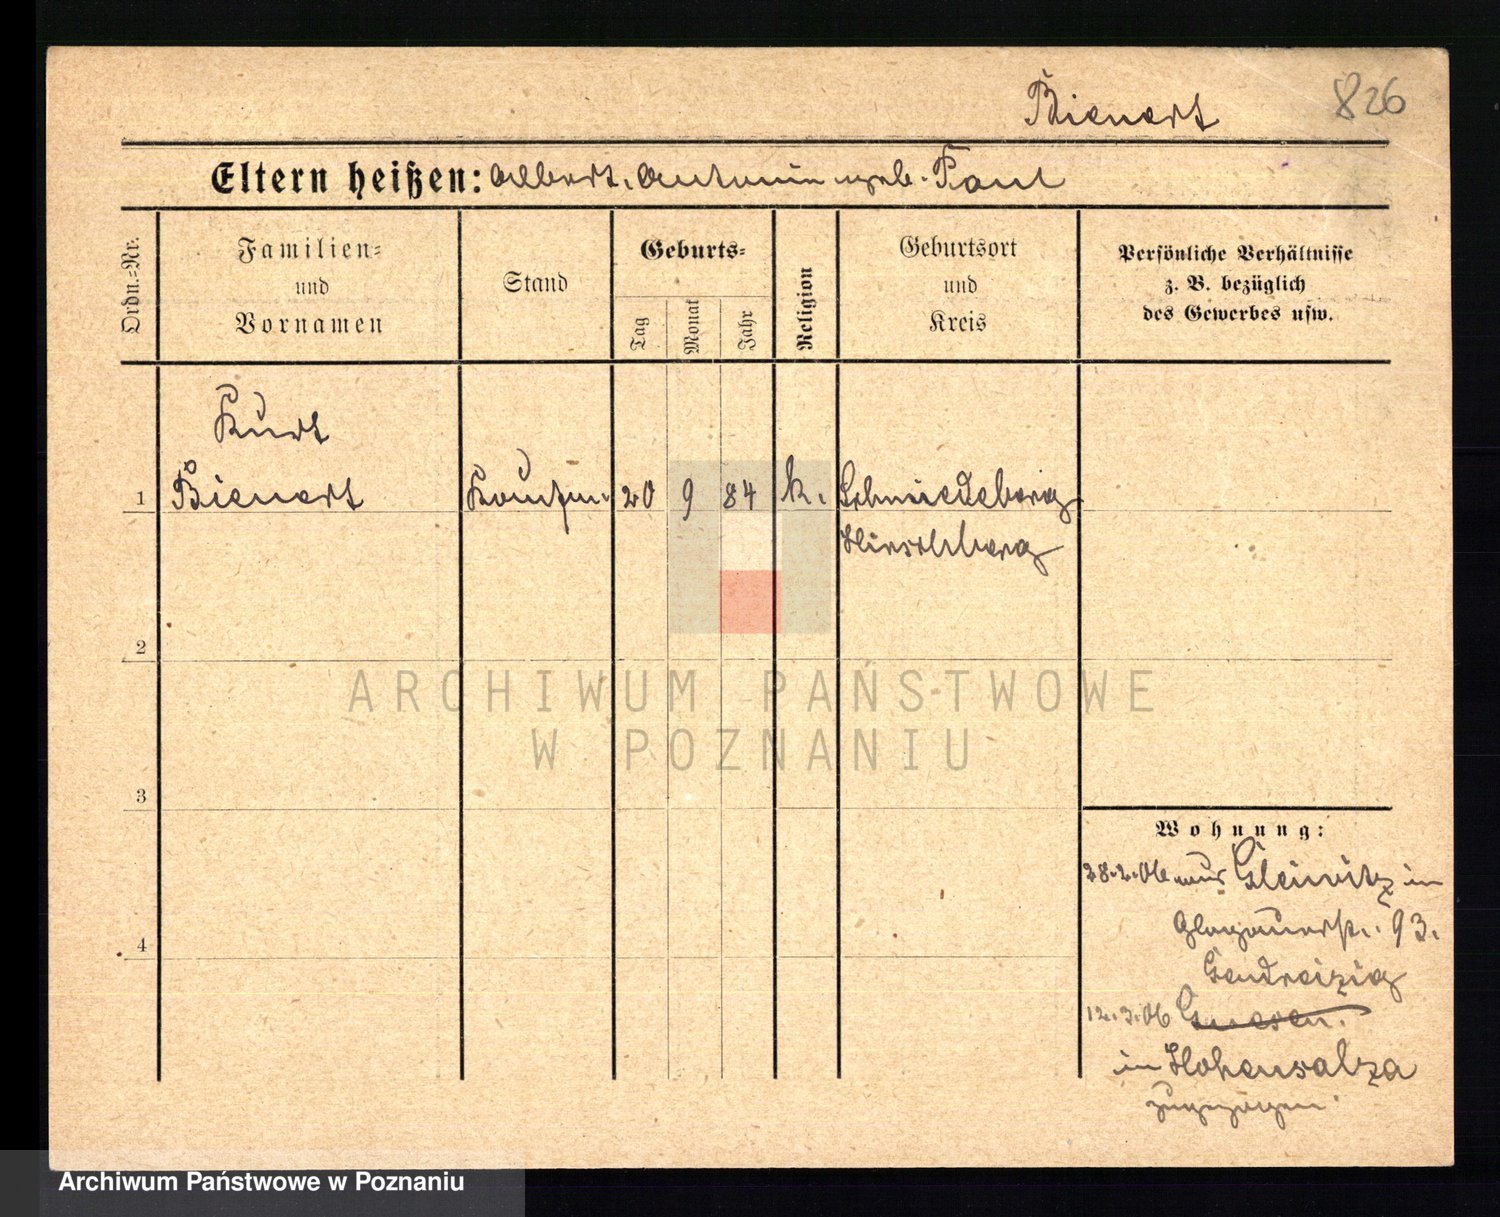 Bienert 826
Eltern heißen: Albert. Antonin geb. Paul
Ordn.-Nr.
Familien-
und
Vornamen
Stand
Geburts-
Tag
Monat
Jahr
Religion
Geburtsort
und
Kreis
Persönliche Verhältnisse
z. B. bezüglich
des Gewerbes usw.
Kurt
1 Bienert Kaufm. 20 9 84 k. Schmiedeberg
Hirschberg
2
3
4
Wohnung:
28.2.06 aus Gleiwitz in
Glogauerstr. 93.
12.3.06 Gnesen.
in Hohensalza
zugezogen.
ARCHIWUM PAŃSTWOWE
W POZNANIU
Archiwum Państwowe w Poznaniu